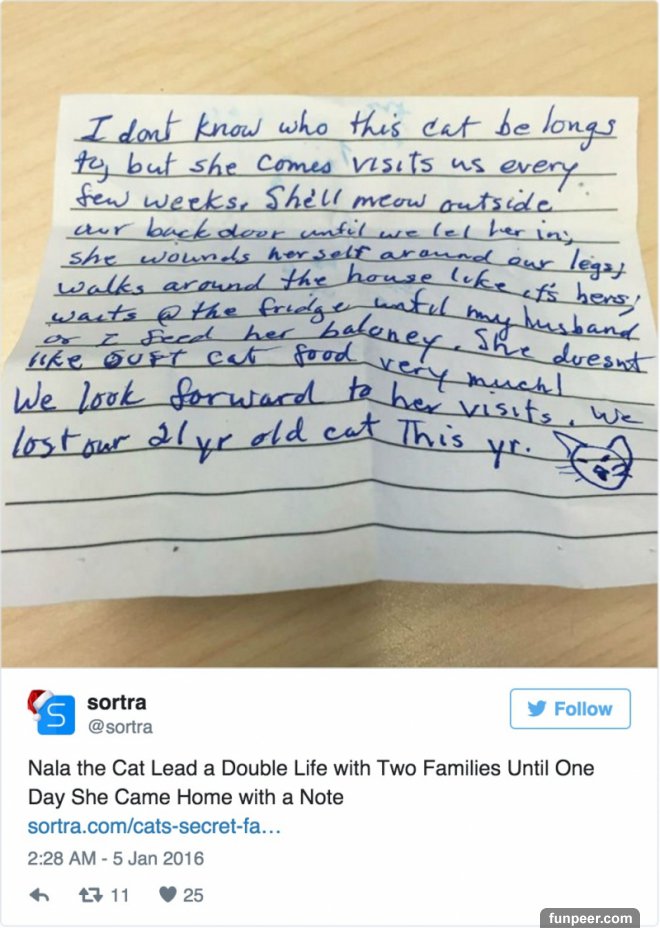 I dont know who this cat belongs
to, but she comes visits us every
few weeks. She'll meow outside
our back door until we let her in;
she wounds herself around our legs;
walks around the house like it's hers;
waits @ the fridge until my husband
or I feed her baloney. She doesnt
like OUFT cat food very much!
We look forward to her visits. We
lost our 21 yr old cat This yr.
S
sortra
@sortra
Follow
Nala the Cat Lead a Double Life with Two Families Until One
Day She Came Home with a Note
sortra.com/cats-secret-fa…
2:28 AM - 5 Jan 2016
11 25
funpeer.com